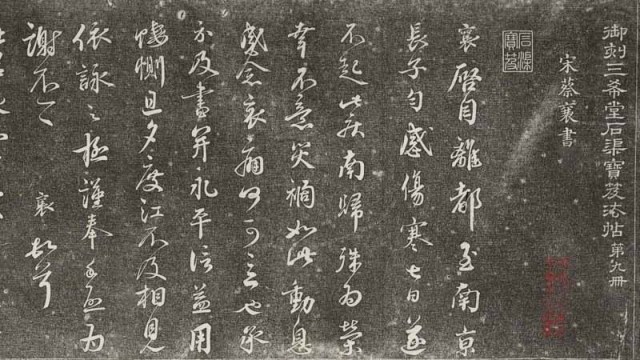 御刻三希堂石渠寶笈法帖 第九冊
宋蔡襄書
石渠寶笈
襄啓自離都至南京
長子勻感傷寒七日遂
不起此疾南歸殊為榮
幸不意災禍如此動息
感念哀痛何可言也承
示及書并永平信益用
悽惻旦夕度江不及相見
依詠之極謹奉手啓為
謝不一一 襄頓首